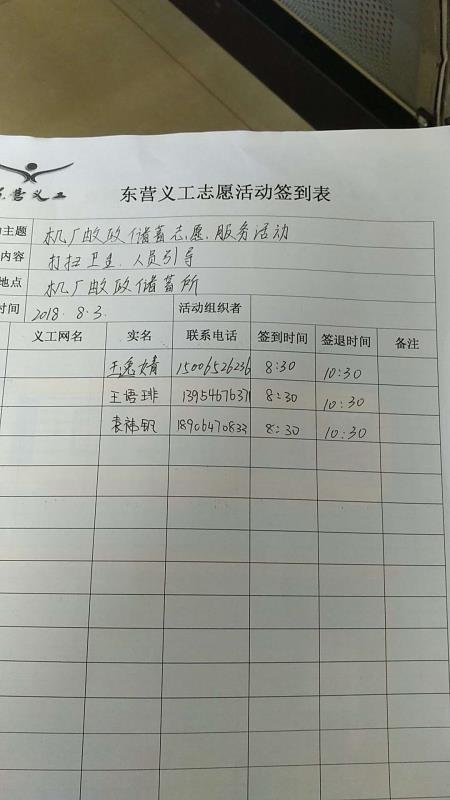 东营义工
东营义工志愿活动签到表
主题 机厂邮政储蓄志愿服务活动
内容 打扫卫生、人员引导
地点 机厂邮政储蓄所
时间 2018.8.3. 活动组织者
义工网名 实名 联系电话 签到时间 签退时间 备注
15006526236 8:30 10:30
王语琲 1395467637 8:30 10:30
袁祎钒 18906470833 8:30 10:30